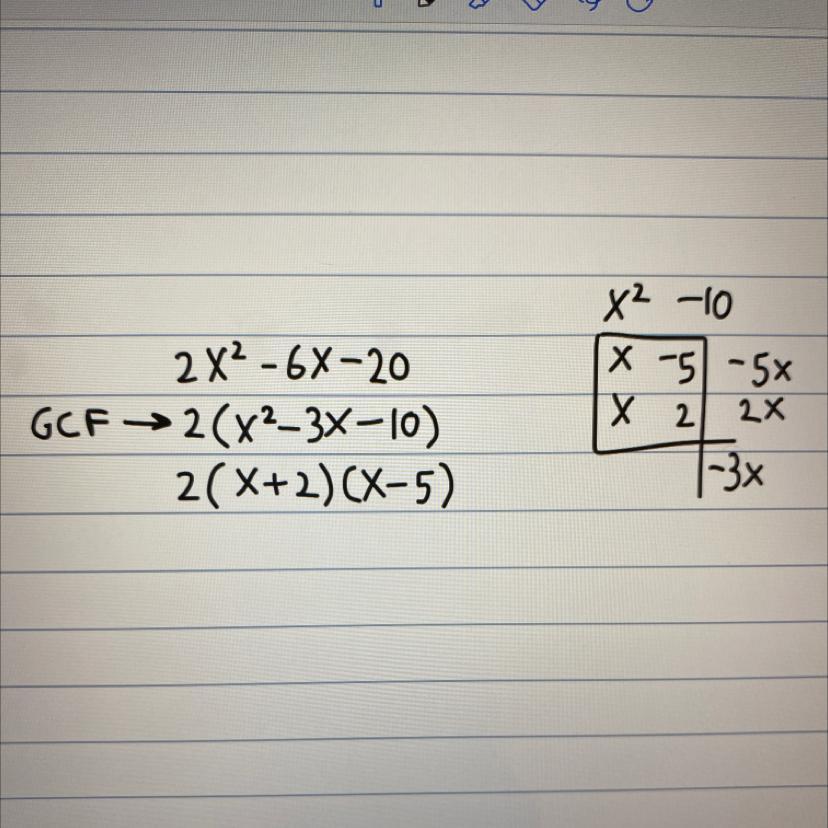 2x² - 6x - 20
GCF → 2(x² - 3x - 10)
2(x + 2)(x - 5)
x² -10
x -5 -5x
x 2 2x
-3x